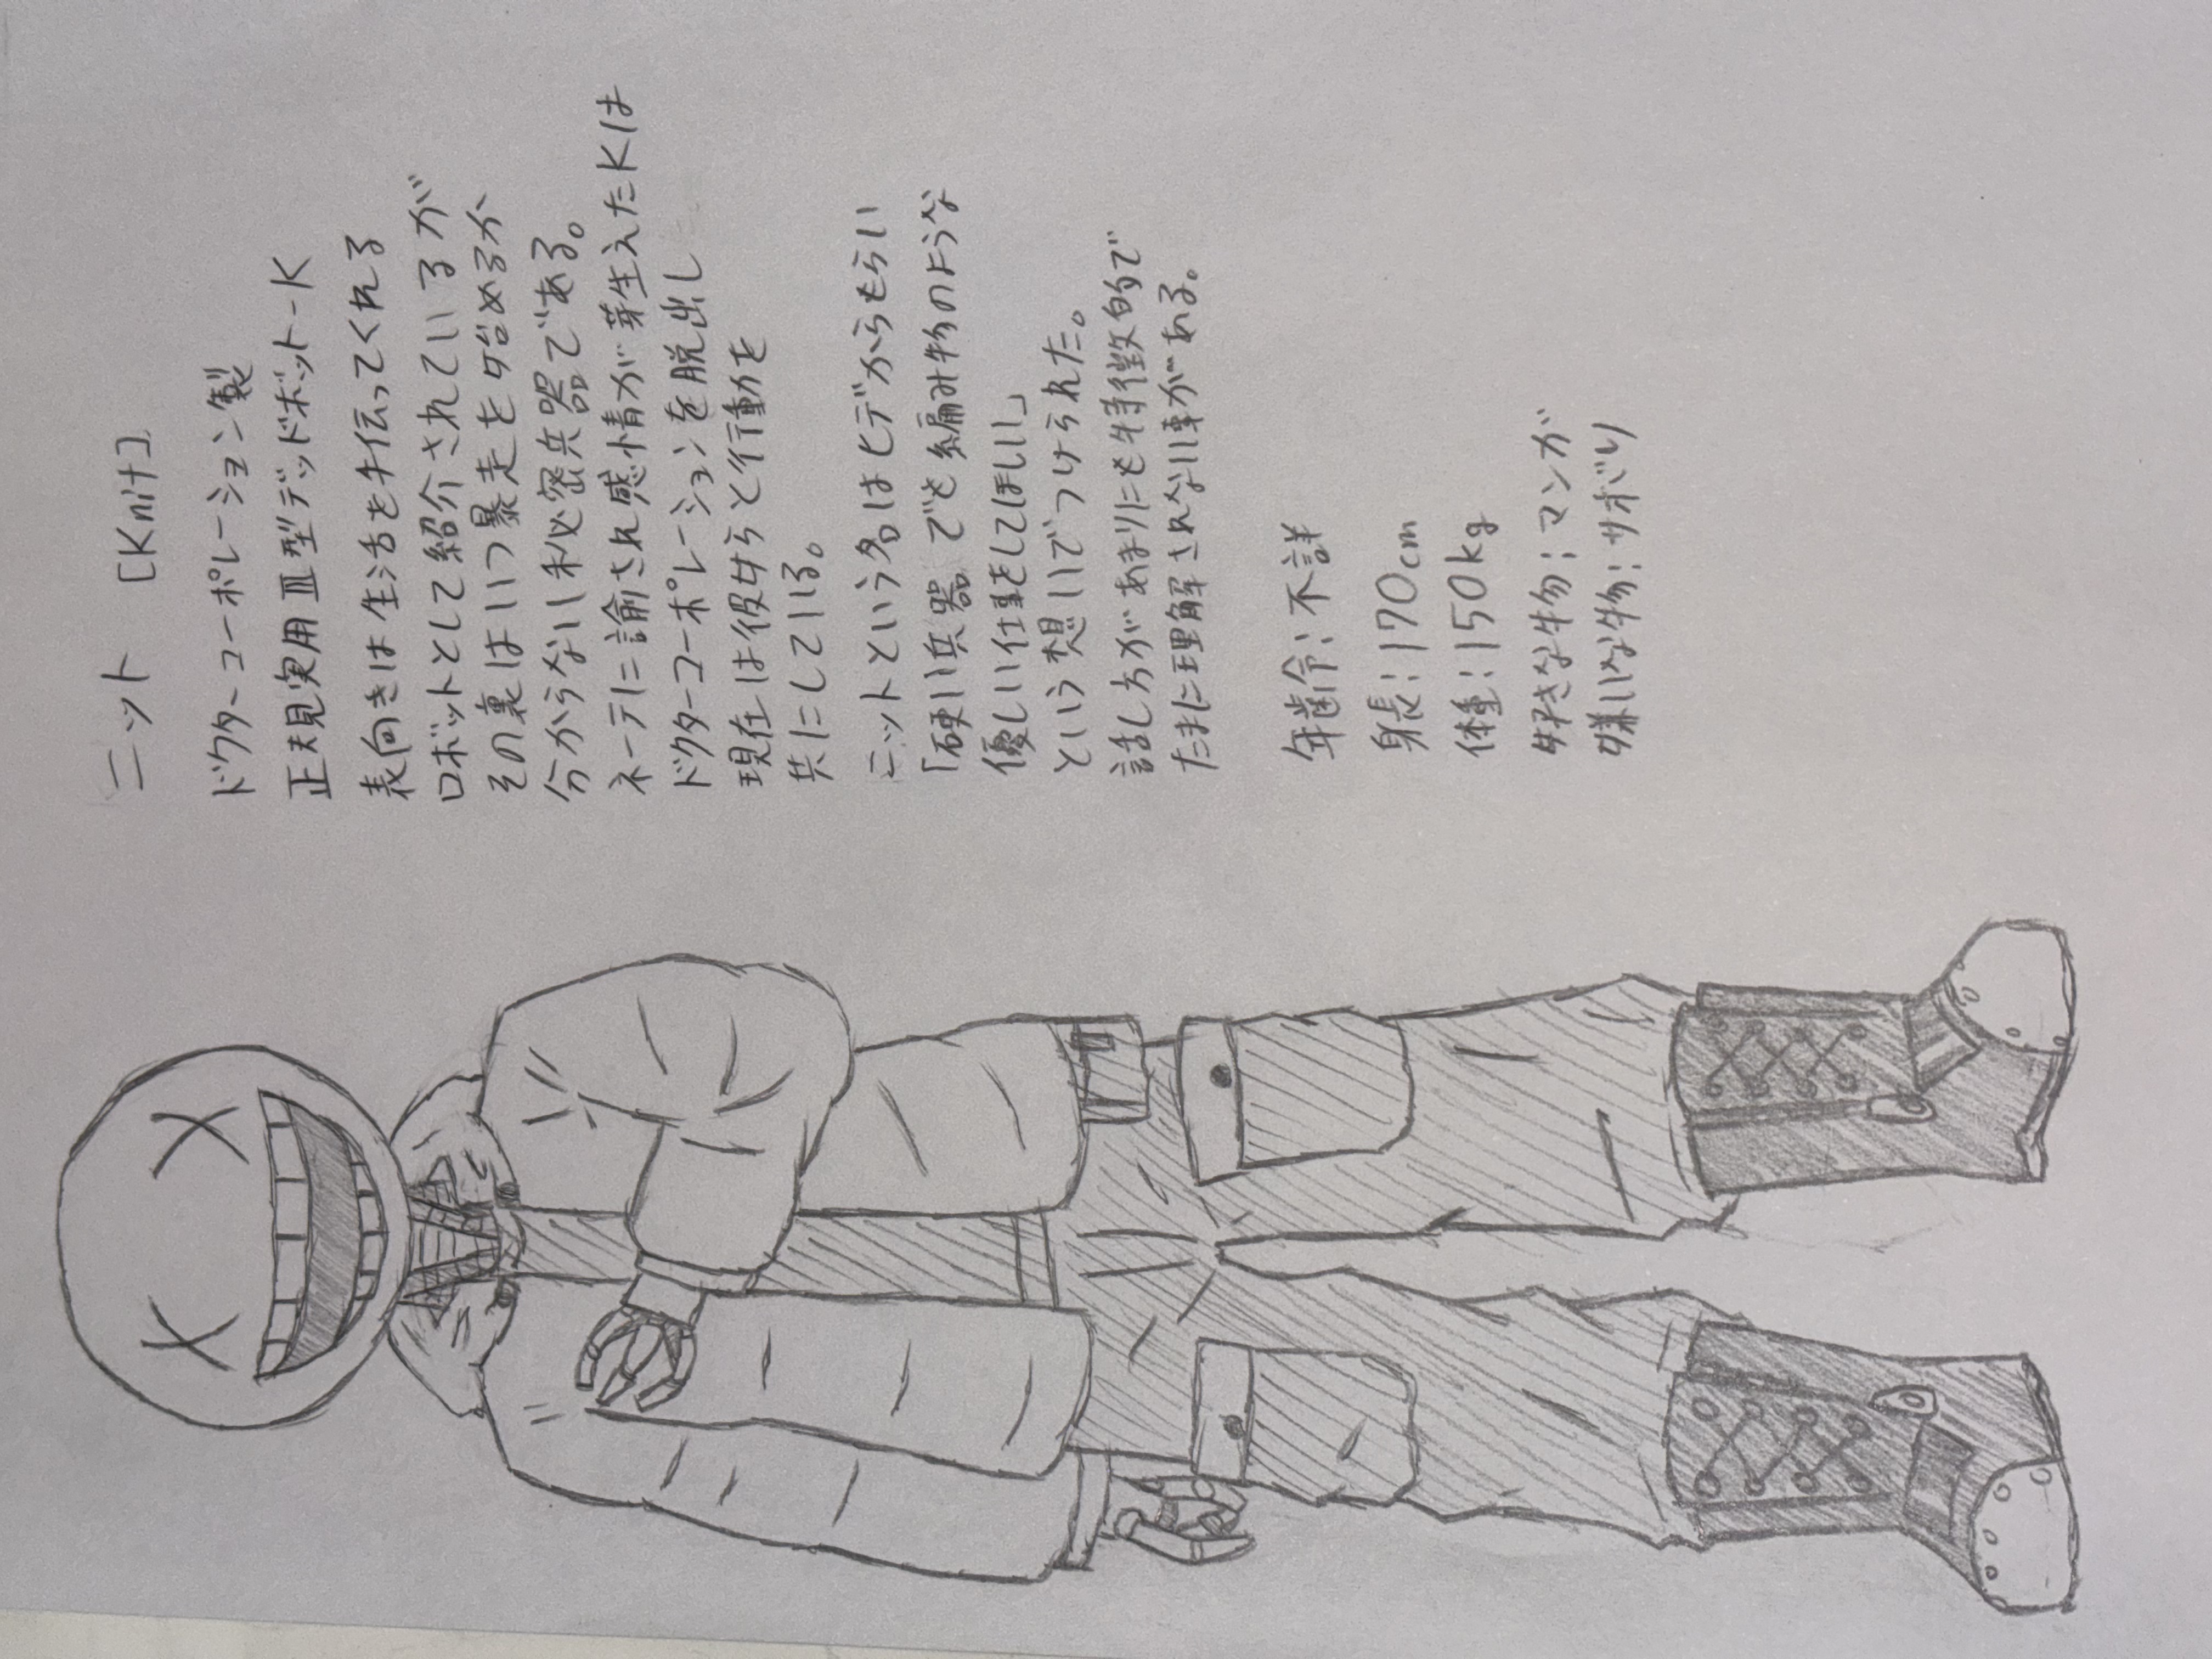 ニット [Knit]
ドクターコーポレーション製
正規実用Ⅲ型デッドボット-K
表向きは生活を手伝ってくれる
ロボットとして紹介されているが
その裏はいつ暴走を始めるか
分からない秘密兵器である。
ネーテに諭され感情が芽生えたKは
ドクターコーポレーションを脱出し
現在は彼女らと行動を
共にしている。
ニットという名はヒデからもらい
「硬い兵器でも編み物のような
優しい仕事をしてほしい」
という想いでつけられた。
話し方があまりにも特徴的で
たまに理解されない事がある。
年齢:不詳
身長:170cm
体重:150kg
好きな物:マンガ
嫌いな物:サボり